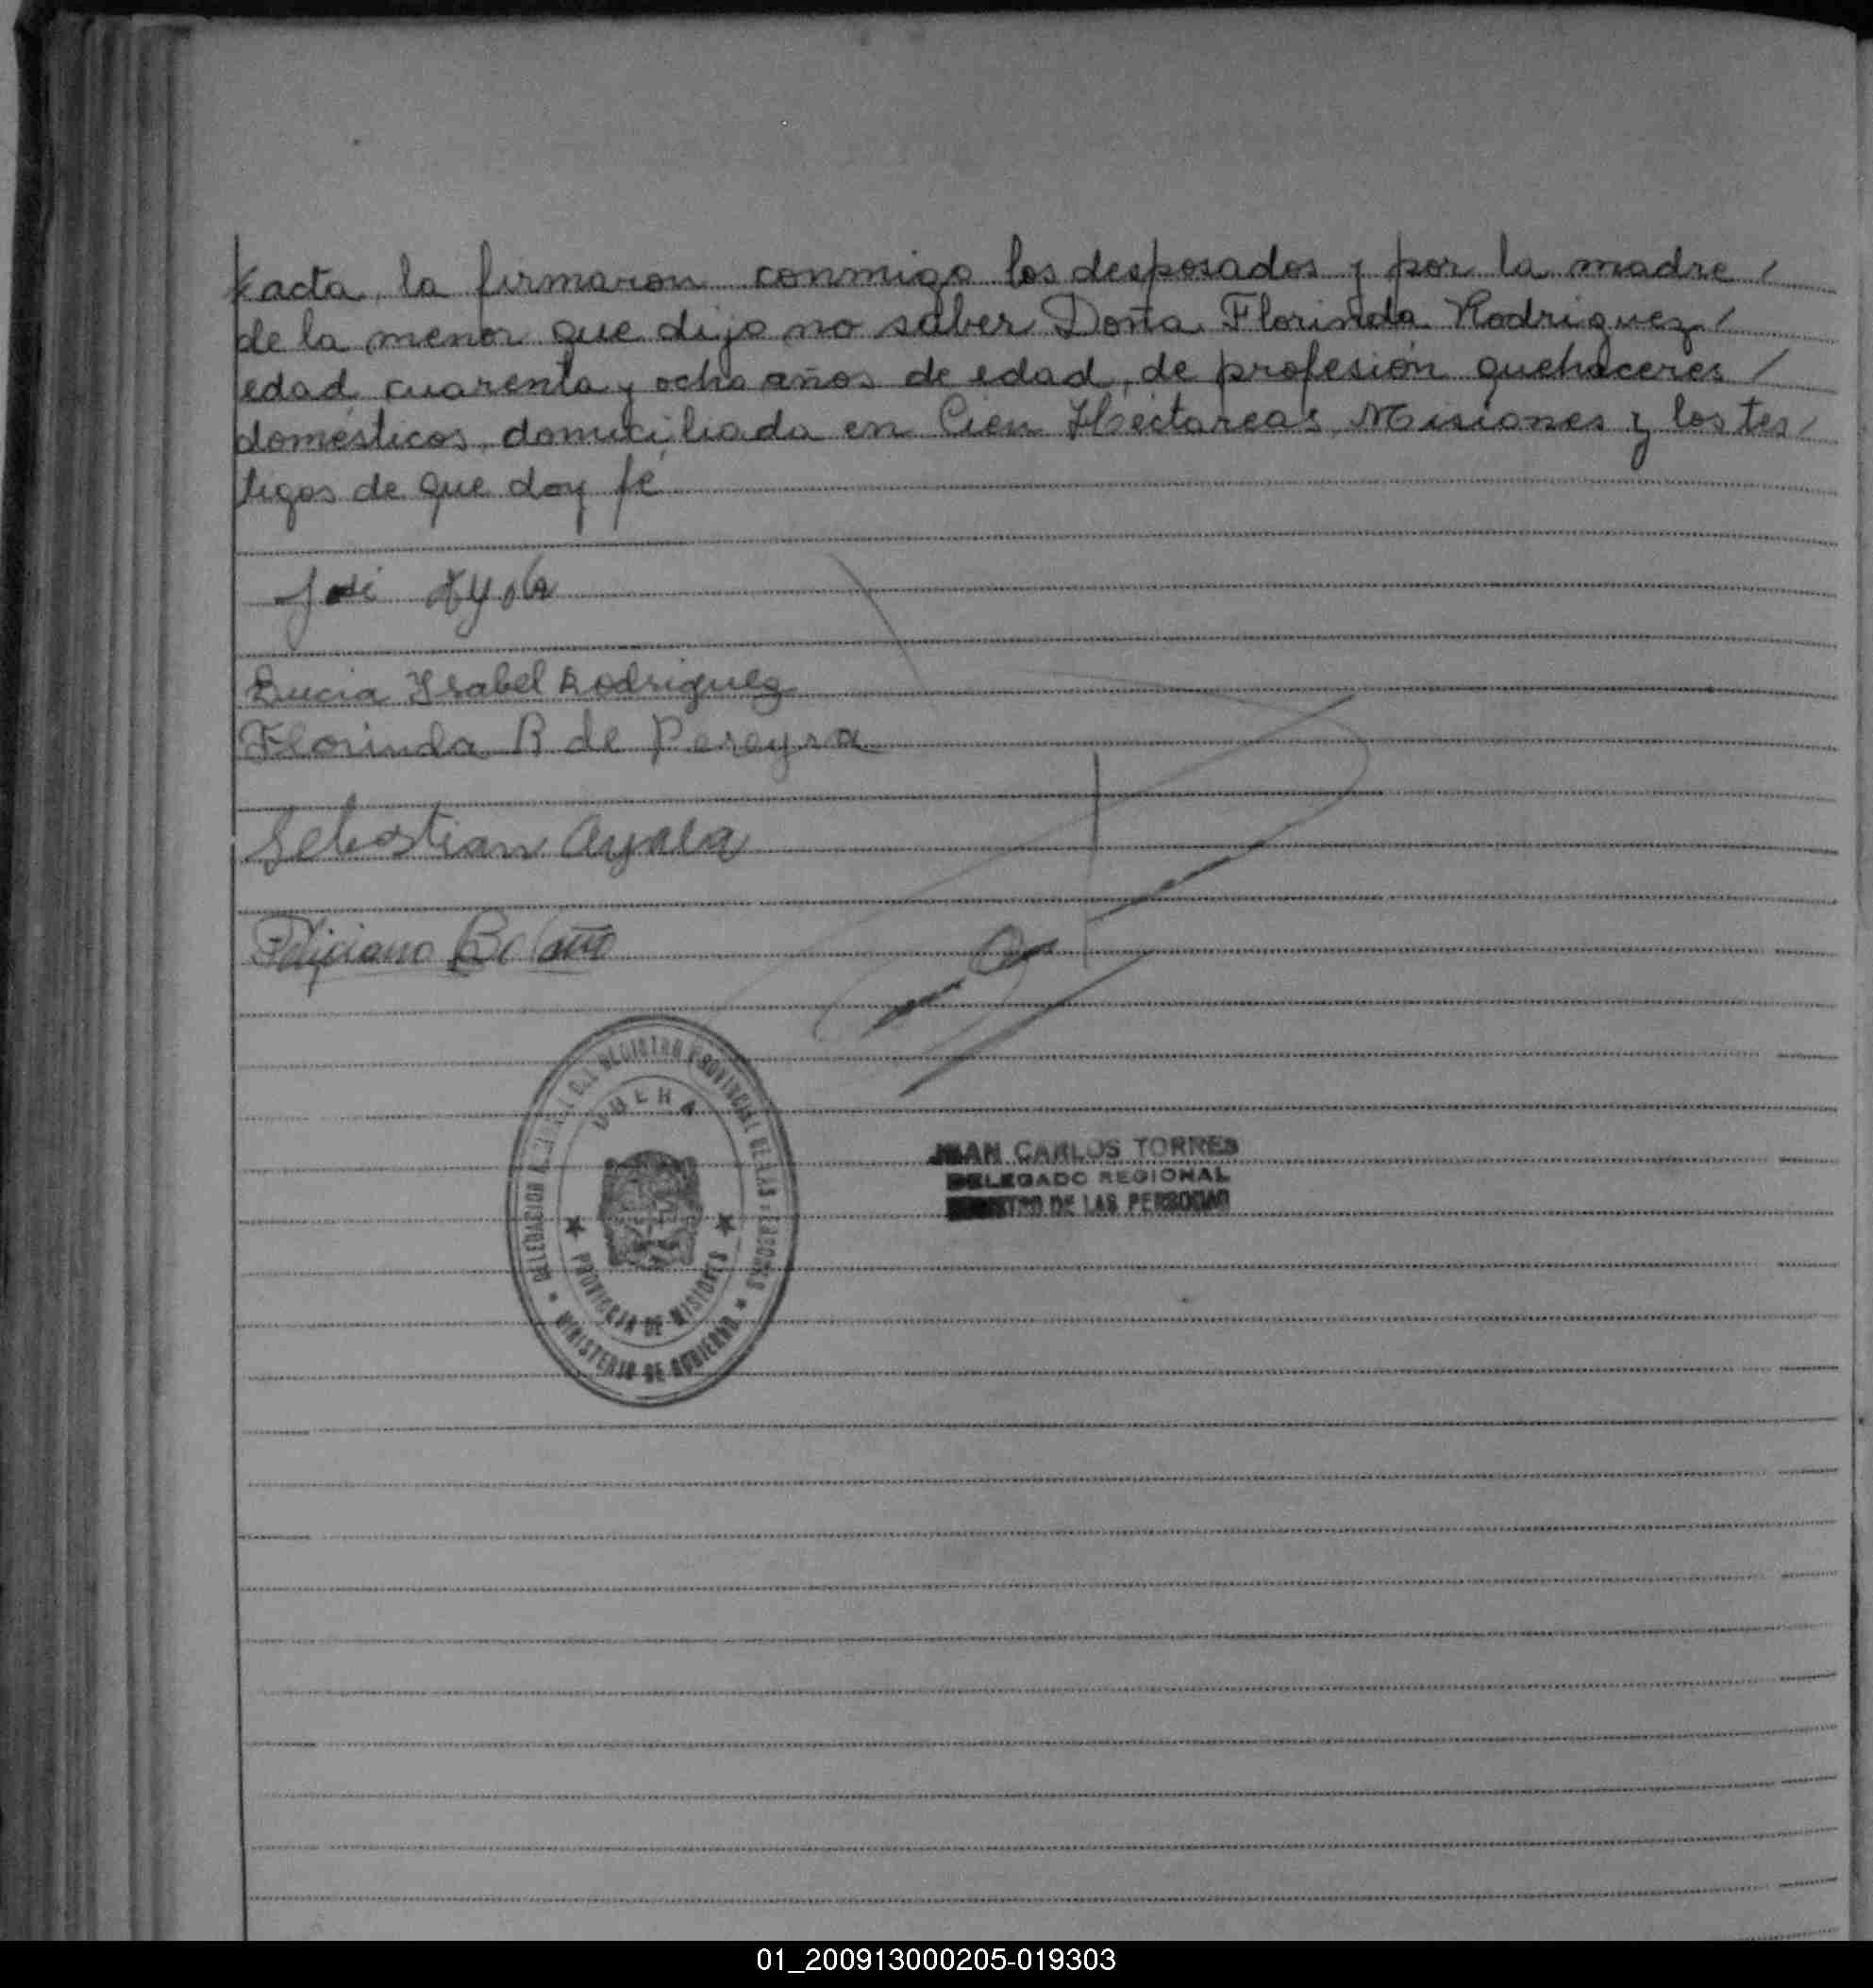 acta, la firmaron conmigo los desposados y por la madre /
de la menor que dijo no saber Doña Florinda Rodriguez /
edad cuarenta y ocho años de edad, de profesión quehaceres /
domésticos, domiciliada en Cien Héctareas, Misiones y los tes/
tigos de que doy fé
José Ayala
Lucia Ysabel Rodriguez
Florinda R de Pereyra
Sebastian Ayala
Feliciano
DELEGACION REGISTRO PROVINCIAL DE LAS PERSONAS
OBERA
PROVINCIA DE MISIONES
MINISTERIO DE GOBIERNO
JUAN CARLOS TORRES
DELEGADO REGIONAL
REGISTRO DE LAS PERSONAS
01_200913000205-019303